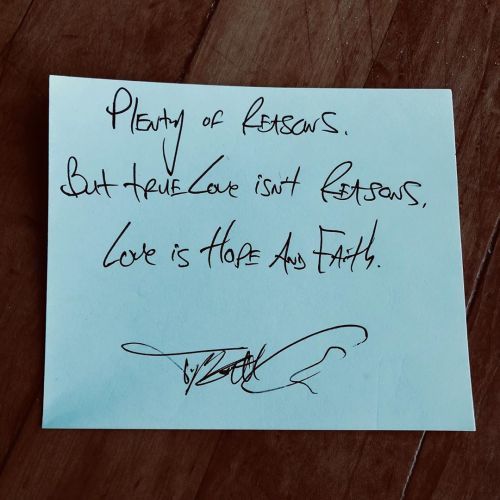 Plenty of Reasons.
But true Love isn't Reasons,
Love is Hope And Faith.